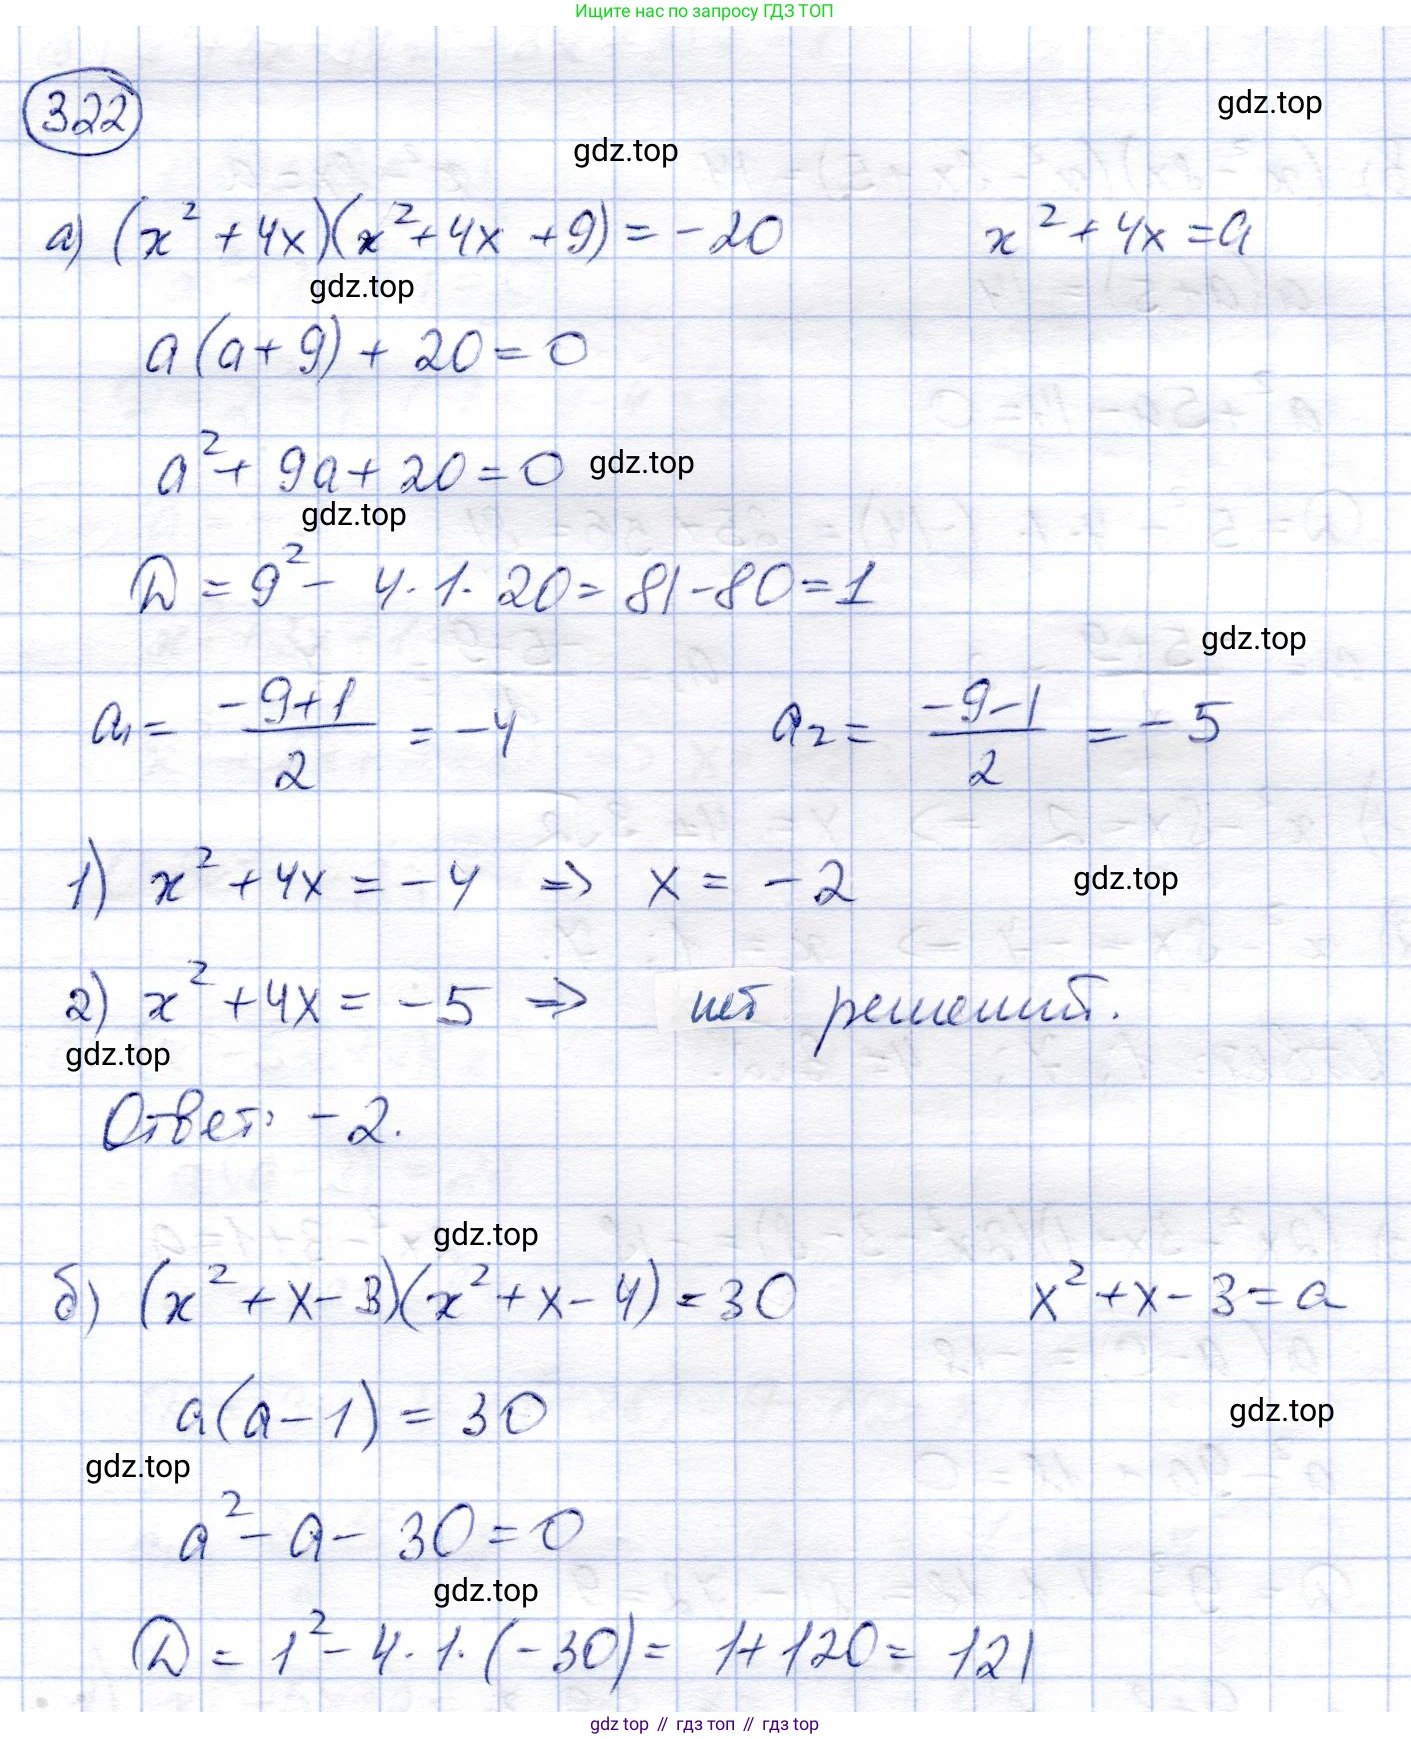 Ищите нас по запросу ГДЗ ТОП
322
gdz.top
gdz.top
а) (x² + 4x)(x² + 4x + 9) = -20     x² + 4x = a
gdz.top
a(a + 9) + 20 = 0
a² + 9a + 20 = 0
gdz.top
gdz.top
D = 9² - 4·1·20 = 81 - 80 = 1
gdz.top
a₁ = (-9+1)/2 = -4     a₂ = (-9-1)/2 = -5
1) x² + 4x = -4 => x = -2
gdz.top
2) x² + 4x = -5 => нет решений.
gdz.top
Ответ: -2.
gdz.top
б) (x² + x - 3)(x² + x - 4) = 30     x² + x - 3 = a
a(a - 1) = 30
gdz.top
gdz.top
a² - a - 30 = 0
gdz.top
D = 1² - 4·1·(-30) = 1 + 120 = 121
gdz top // гдз топ // гдз top